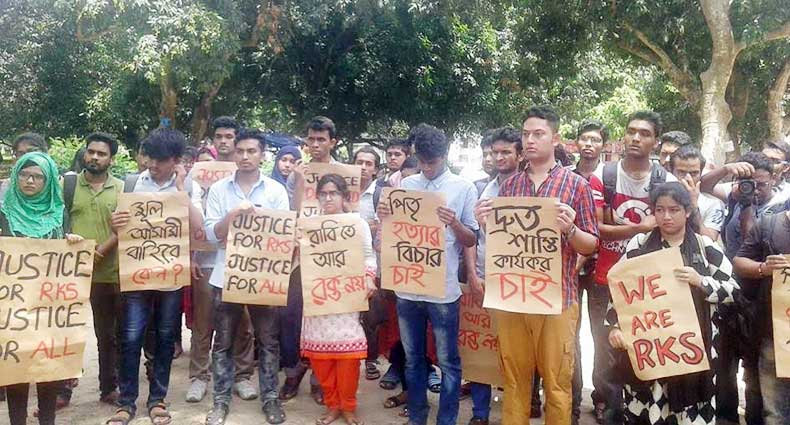 JUSTICE
FOR RKS
JUSTICE
FOR ALL
মূল
আসামী
বাহিরে
কেন?
JUSTICE
FOR RKS
JUSTICE
FOR ALL
রাবিতে
আর
রক্ত নয়
পিতৃ
হত্যার
বিচার
চাই
দ্রুত
শাস্তি
কার্যকর
চাই
আর
রক্ত নয়
WE
ARE
RKS